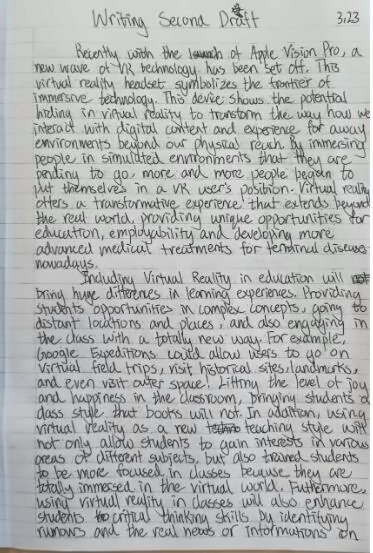 Writing Second Draft 3.23
Recently with the launch of Apple Vision Pro, a
new wave of VR technology has been set off. This
virtual reality headset symbolizes the frontier of
immersive technology. This device shows the potential
hiding in virtual reality to transform the way how we
interact with digital content and experience far away
environments beyond our physical reach. By immersing
people in simulated environments that they are
pending to go, more and more people begin to
put themselves in a VR user's position. Virtual reality
offers a transformative experience that extends beyond
the real world, providing unique opportunities for
education, employability and developing more
advanced medical treatments for terminal disease
nowadays.
Including Virtual Reality in education will
bring huge differences in learning experiences. Providing
students opportunities in complex concepts, going to
distant locations and places, and also engaging in
the class with a totally new way. For example,
Google Expeditions could allow users to go on
virtual field trips, visit historical sites/landmarks,
and even visit outer space! Lifting the level of joy
and happiness in the classroom, bringing students a
class style that books will not. In addition, using
virtual reality as a new teaching style will
not only allow students to gain interests in various
areas of different subjects, but also trained students
to be more focused in classes because they are
totally immersed in the virtual world. Futhermore,
using virtual reality in classes will also enhance
students critical thinking skills by identifying
rumours and the real news or informations on